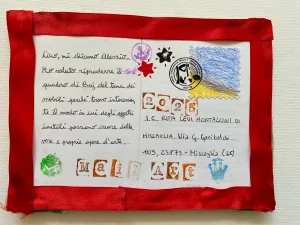 Ciao, mi chiamo Alessio.
Ho voluto riprodurre il
quadro di Baj del tema dei
mobili perché trovo interessan
te il modo in cui degli oggetti
inutili possano essere delle
vere e proprie opere d'arte.
2025
I.C. RITA LEVI MONTALCINI DI
MISSAGLIA. Via G. Garibaldi
23873 - Missaglia (LC)
MAIL ART